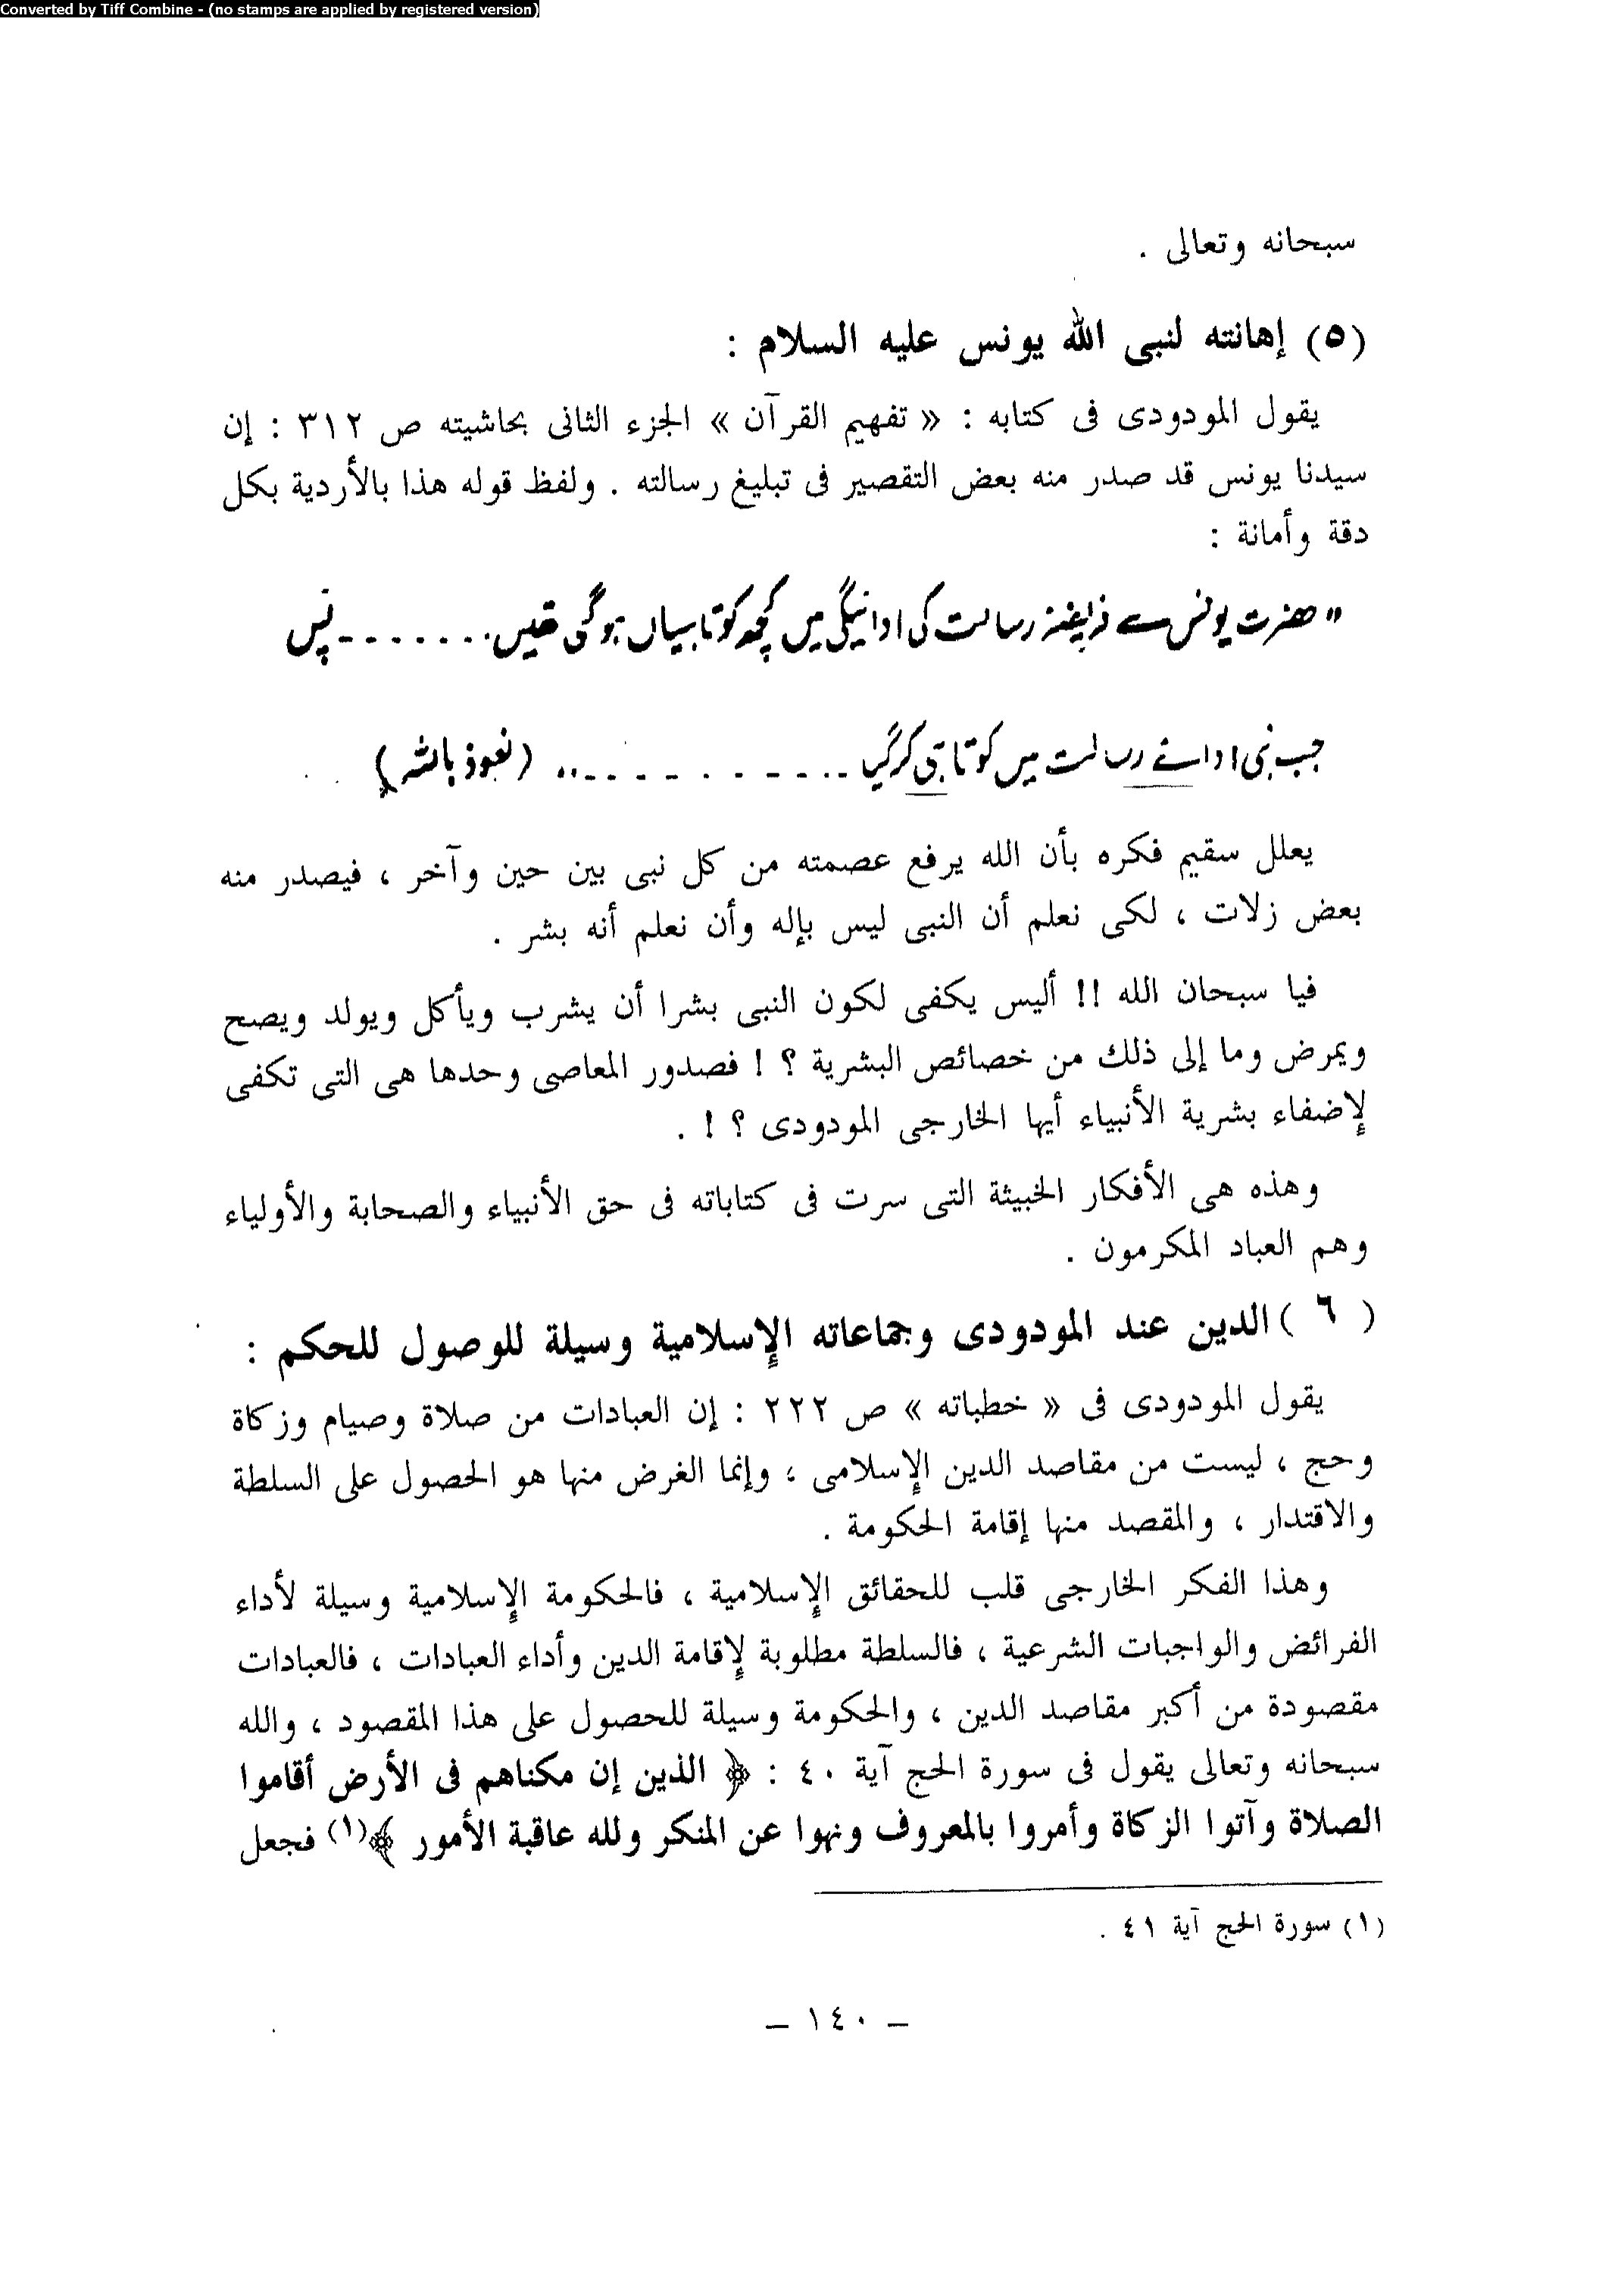 Converted by Tiff Combine - (no stamps are applied by registered version)
سبحانه وتعالى .
(٥) إهانته لنبى الله يونس عليه السلام :
يقول المودودى فى كتابه : « تفهيم القرآن » الجزء الثانى بحاشيته ص ٣١٢ : إن
سيدنا يونس قد صدر منه بعض التقصير فى تبليغ رسالته . ولفظ قوله هذا بالأردية بكل
دقة وأمانة :
" حضرت یونس سے فریضۂ رسالت کی ادائیگی میں کچھ کوتاہیاں ہوگی تھیں . . . . . . - - پس
جب نبی ادائے رسالت میں کوتاہی کر گیا .. - - - . - - . - - - - .. (نعوذ باللہ)
يعلل سقيم فكره بأن الله يرفع عصمته من كل نبى بين حين وآخر ، فيصدر منه
بعض زلات ، لكى نعلم أن النبى ليس بإله وأن نعلم أنه بشر .
فيا سبحان الله !! أليس يكفى لكون النبى بشرا أن يشرب ويأكل ويولد ويصح
ويمرض وما إلى ذلك من خصائص البشرية ؟ ! فصدور المعاصى وحدها هى التى تكفى
لإضفاء بشرية الأنبياء أيها الخارجى المودودى ؟ ! .
وهذه هى الأفكار الخبيثة التى سرت فى كتاباته فى حق الأنبياء والصحابة والأولياء
وهم العباد المكرمون .
( ٦ ) الدين عند المودودى وجماعاته الإسلامية وسيلة للوصول للحكم :
يقول المودودى فى « خطباته » ص ٢٢٢ : إن العبادات من صلاة وصيام وزكاة
وحج ، ليست من مقاصد الدين الإسلامى ، وإنما الغرض منها هو الحصول على السلطة
والاقتدار ، والمقصد منها إقامة الحكومة .
وهذا الفكر الخارجى قلب للحقائق الإسلامية ، فالحكومة الإسلامية وسيلة لأداء
الفرائض والواجبات الشرعية ، فالسلطة مطلوبة لإقامة الدين وأداء العبادات ، فالعبادات
مقصودة من أكبر مقاصد الدين ، والحكومة وسيلة للحصول على هذا المقصود ، والله
سبحانه وتعالى يقول فى سورة الحج آية ٤٠ : ﴿ الذين إن مكناهم فى الأرض أقاموا
الصلاة وآتوا الزكاة وأمروا بالمعروف ونهوا عن المنكر ولله عاقبة الأمور ﴾(١) فجعل
(١) سورة الحج آية ٤١ .
– ١٤٠ –